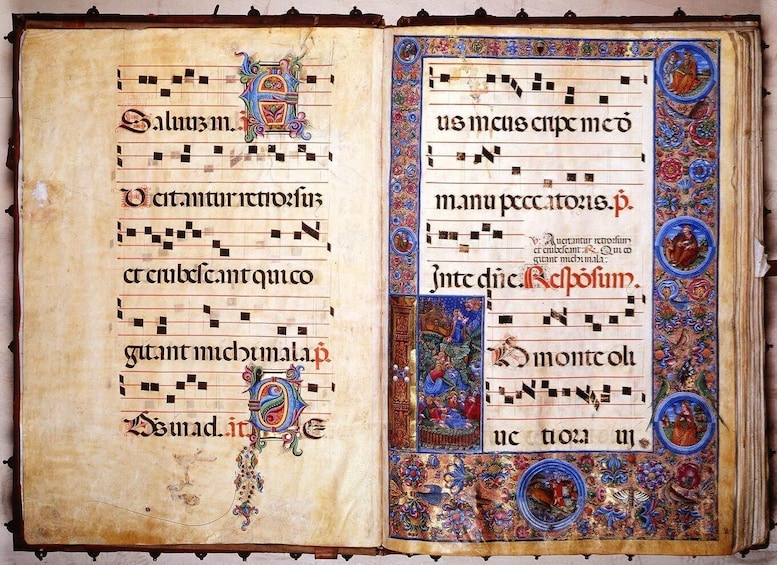 Saluuz m.
Vertantur retrorsuz
et erubescant qui co
gitant michi mala. p̃.
Ds in ad. añt. D E
us meus eripe me dõ
manu peccatoris. p̃.
V. Auertantur retrorsum
et erubescant. R. Qui co
gitant michi mala:
Inte dñe. Respõsum.
monte oli
ueti ora ui